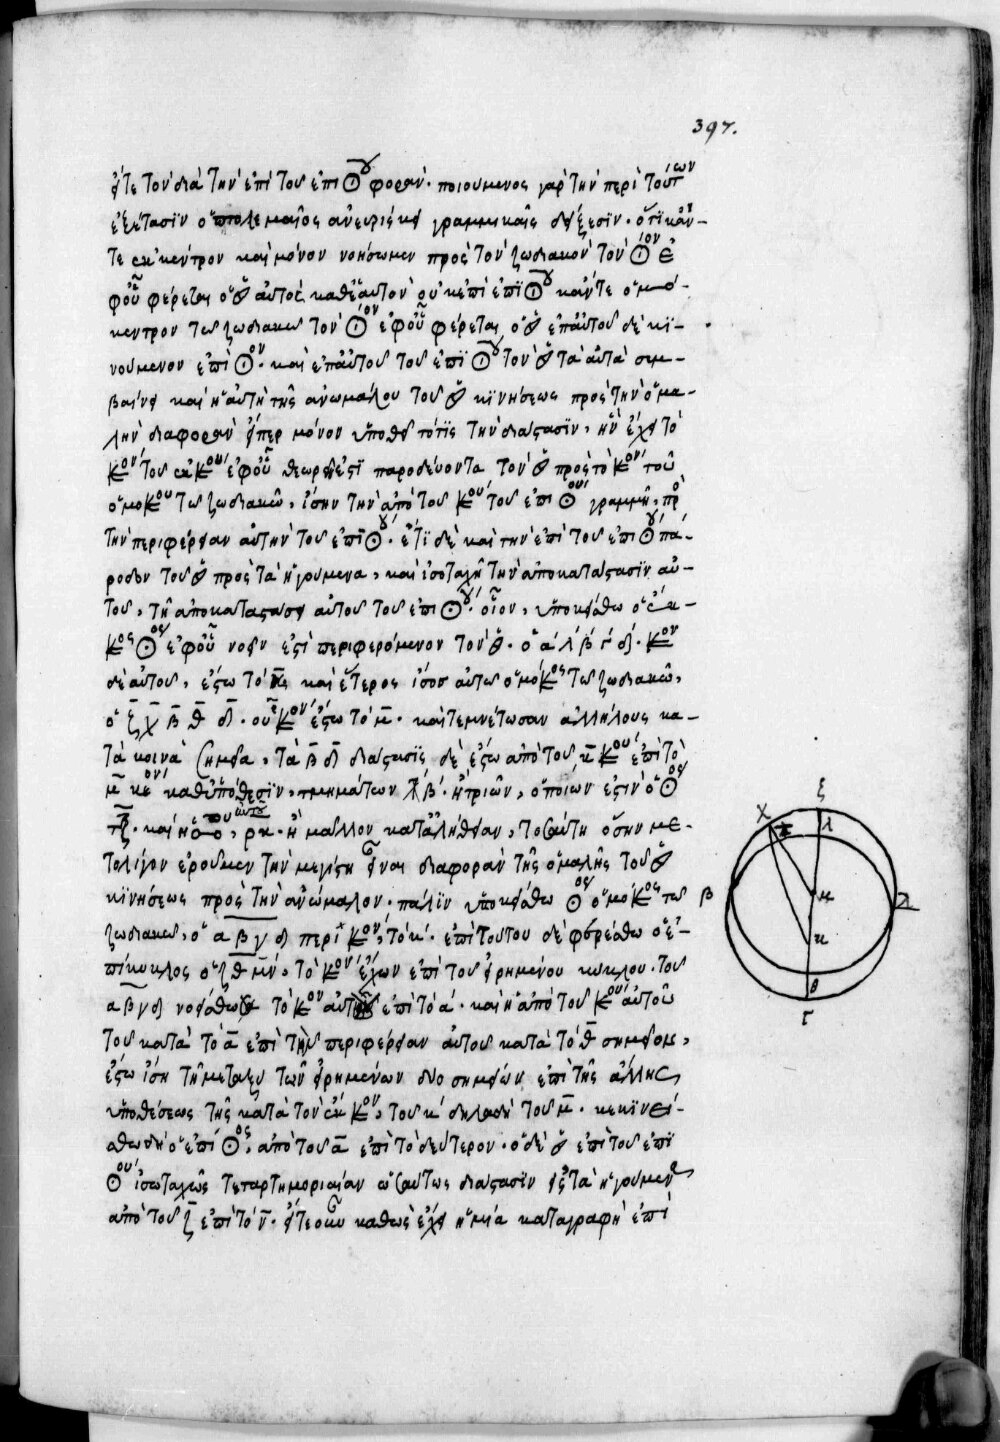 397.
εἴτε τὸν διὰ τὴν ἐπὶ τοῦ ἐπι☉ου φοράν· ποιούμενος γὰρ τὴν περὶ τούτων
ἐξέτασιν ὁ πτολεμαῖος ἀνευρίσκει γραμμικαῖς δείξεσιν· ὅτι κἄν-
τε ἔκκεντρον καὶ μόνον νοήσωμεν πρὸς τὸν ζωδιακὸν τὸν ☉ον ἐ
φοὗ φέρεται ὁ ☉ αὐτὸς καθἑαυτὸν οὐκ ἐπὶ ἐπι☉ου κἄντε ὁμό-
κεντρον τῷ ζωδιακῷ τὸν ☉ον ἐφοὗ φέρεται ὁ ☉ ἐπαὐτοῦ δὲ κι-
νούμενον ἐπι☉ον· καὶ ἐπαὐτοῦ τοῦ ἐπι☉ου τὸν ☉ τὰ αὐτὰ συμ-
βαίνει καὶ ἡ αὐτὴ τῆς ἀνωμάλου τοῦ ☉ κινήσεως πρὸς τὴν ὁμα-
λὴν διαφορὰν εἴπερ μόνον ὑποθεῖτό τις τὴν διάστασιν, ἣν ἔχει τὸ
κον τοῦ ἐκκου ἐφοὗ θεωρεῖ παροδεύοντα τὸν ☉ πρὸς τὸ κον τοῦ
ὁμοκου τῷ ζωδιακῷ, ἴσην τὴν ἀπὸ τοῦ κου τοῦ ἐπι☉ου γραμμῇ, πρὸ
τὴν περιφέρειαν αὐτὴν τοῦ ἐπι☉ου· ἔτι δὲ καὶ τὴν ἐπὶ τοῦ ἐπι☉ου πά-
ροδον τοῦ ☉ πρὸς τὰ ἡγούμενα, καὶ ἰσοταχῆ τὴν ἀποκατάστασιν αὐ-
τοῦ, τῇ ἀποκαταστάσει αὐτοῦ τοῦ ἐπι☉ου· οἷον, ὑποκείσθω ὁ ἔκ-
κος ☉ος ἐφοὗ νοεῖν ἐστὶ περιφερόμενον τὸν ☉· ὁ α λ β γ δ· κον
δὲ αὐτοῦ, ἔστω τὸ κ καὶ ἕτερος ἴσος αὐτῷ ὁμόκος τῷ ζωδιακῷ,
ὁ ξ χ β θ δ· οὗ κον ἔστω τὸ μ· καὶ τεμνέτωσαν ἀλλήλους κα-
τὰ κοινὰ σημεῖα, τὰ β δ διάστασις δὲ ἔστω ἀπὸ τοῦ κ κου ἐπὶ τὸ
μ κον καθὑπόθεσιν, τμημάτων β· ἢ τριῶν, ὁποίων ἐστὶν ὁ ☉ος
τξ· καὶ ἡ , ρκ· ἡ μᾶλλον κατάληψαν, τοσαύτη ὅσην με-
τολίγον ἐροῦμεν τὴν μεγίστη εἶναι διαφορὰν τῆς ὁμαλῆς τοῦ ☉
κινήσεως πρὸς τὴν ἀνώμαλον· πάλιν ὑποκείσθω ☉ος ὁμόκος τῷ
ζωδιακῷ, ὁ α β γ δ περὶ κον, τὸ κ· ἐπὶ τούτου δὲ φερέσθω ὁ ἐ-
πίκυκλος ὁ ζ θ μ ν, τὸ κον ἔχων ἐπὶ τοῦ εἰρημένου κύκλου· τοῦ
α β γ δ νοείσθω τὸ κον ἐπὶ τὸ α· καὶ ἡ ἀπὸ τοῦ κου αὐτοῦ
τοῦ κατὰ τὸ α ἐπὶ τὴν περιφέρειαν αὐτοῦ κατὰ τὸ θ σημεῖον,
ἔστω ἴση τῇ μεταξὺ τῶν εἰρημένων δύο σημείων ἐπὶ τῆς ἄλλης
ὑποθέσεως τῆς κατὰ τὸν ἔκκον, τοῦ κ δηλαδὴ τοῦ μ· κεκινεί-
σθω δὴ ὁ ἐπι☉ος, ἀπὸ τοῦ α ἐπὶ τὸ δεύτερον· ὁ δὲ ☉ ἐπὶ τοῦ ἐπι
☉ου ἰσοταχῶς τεταρτημοριαίαν ὡσαύτως διάστασιν εἰς τὰ ἡγούμενα
ἀπὸ τοῦ ζ ἐπὶ τὸ ν· εἴτε οὖν καθὼς ἔχει ἡ μία καταγραφὴ ἐπὶ
ξ
χ
λ
β
μ
κ
θ
γ